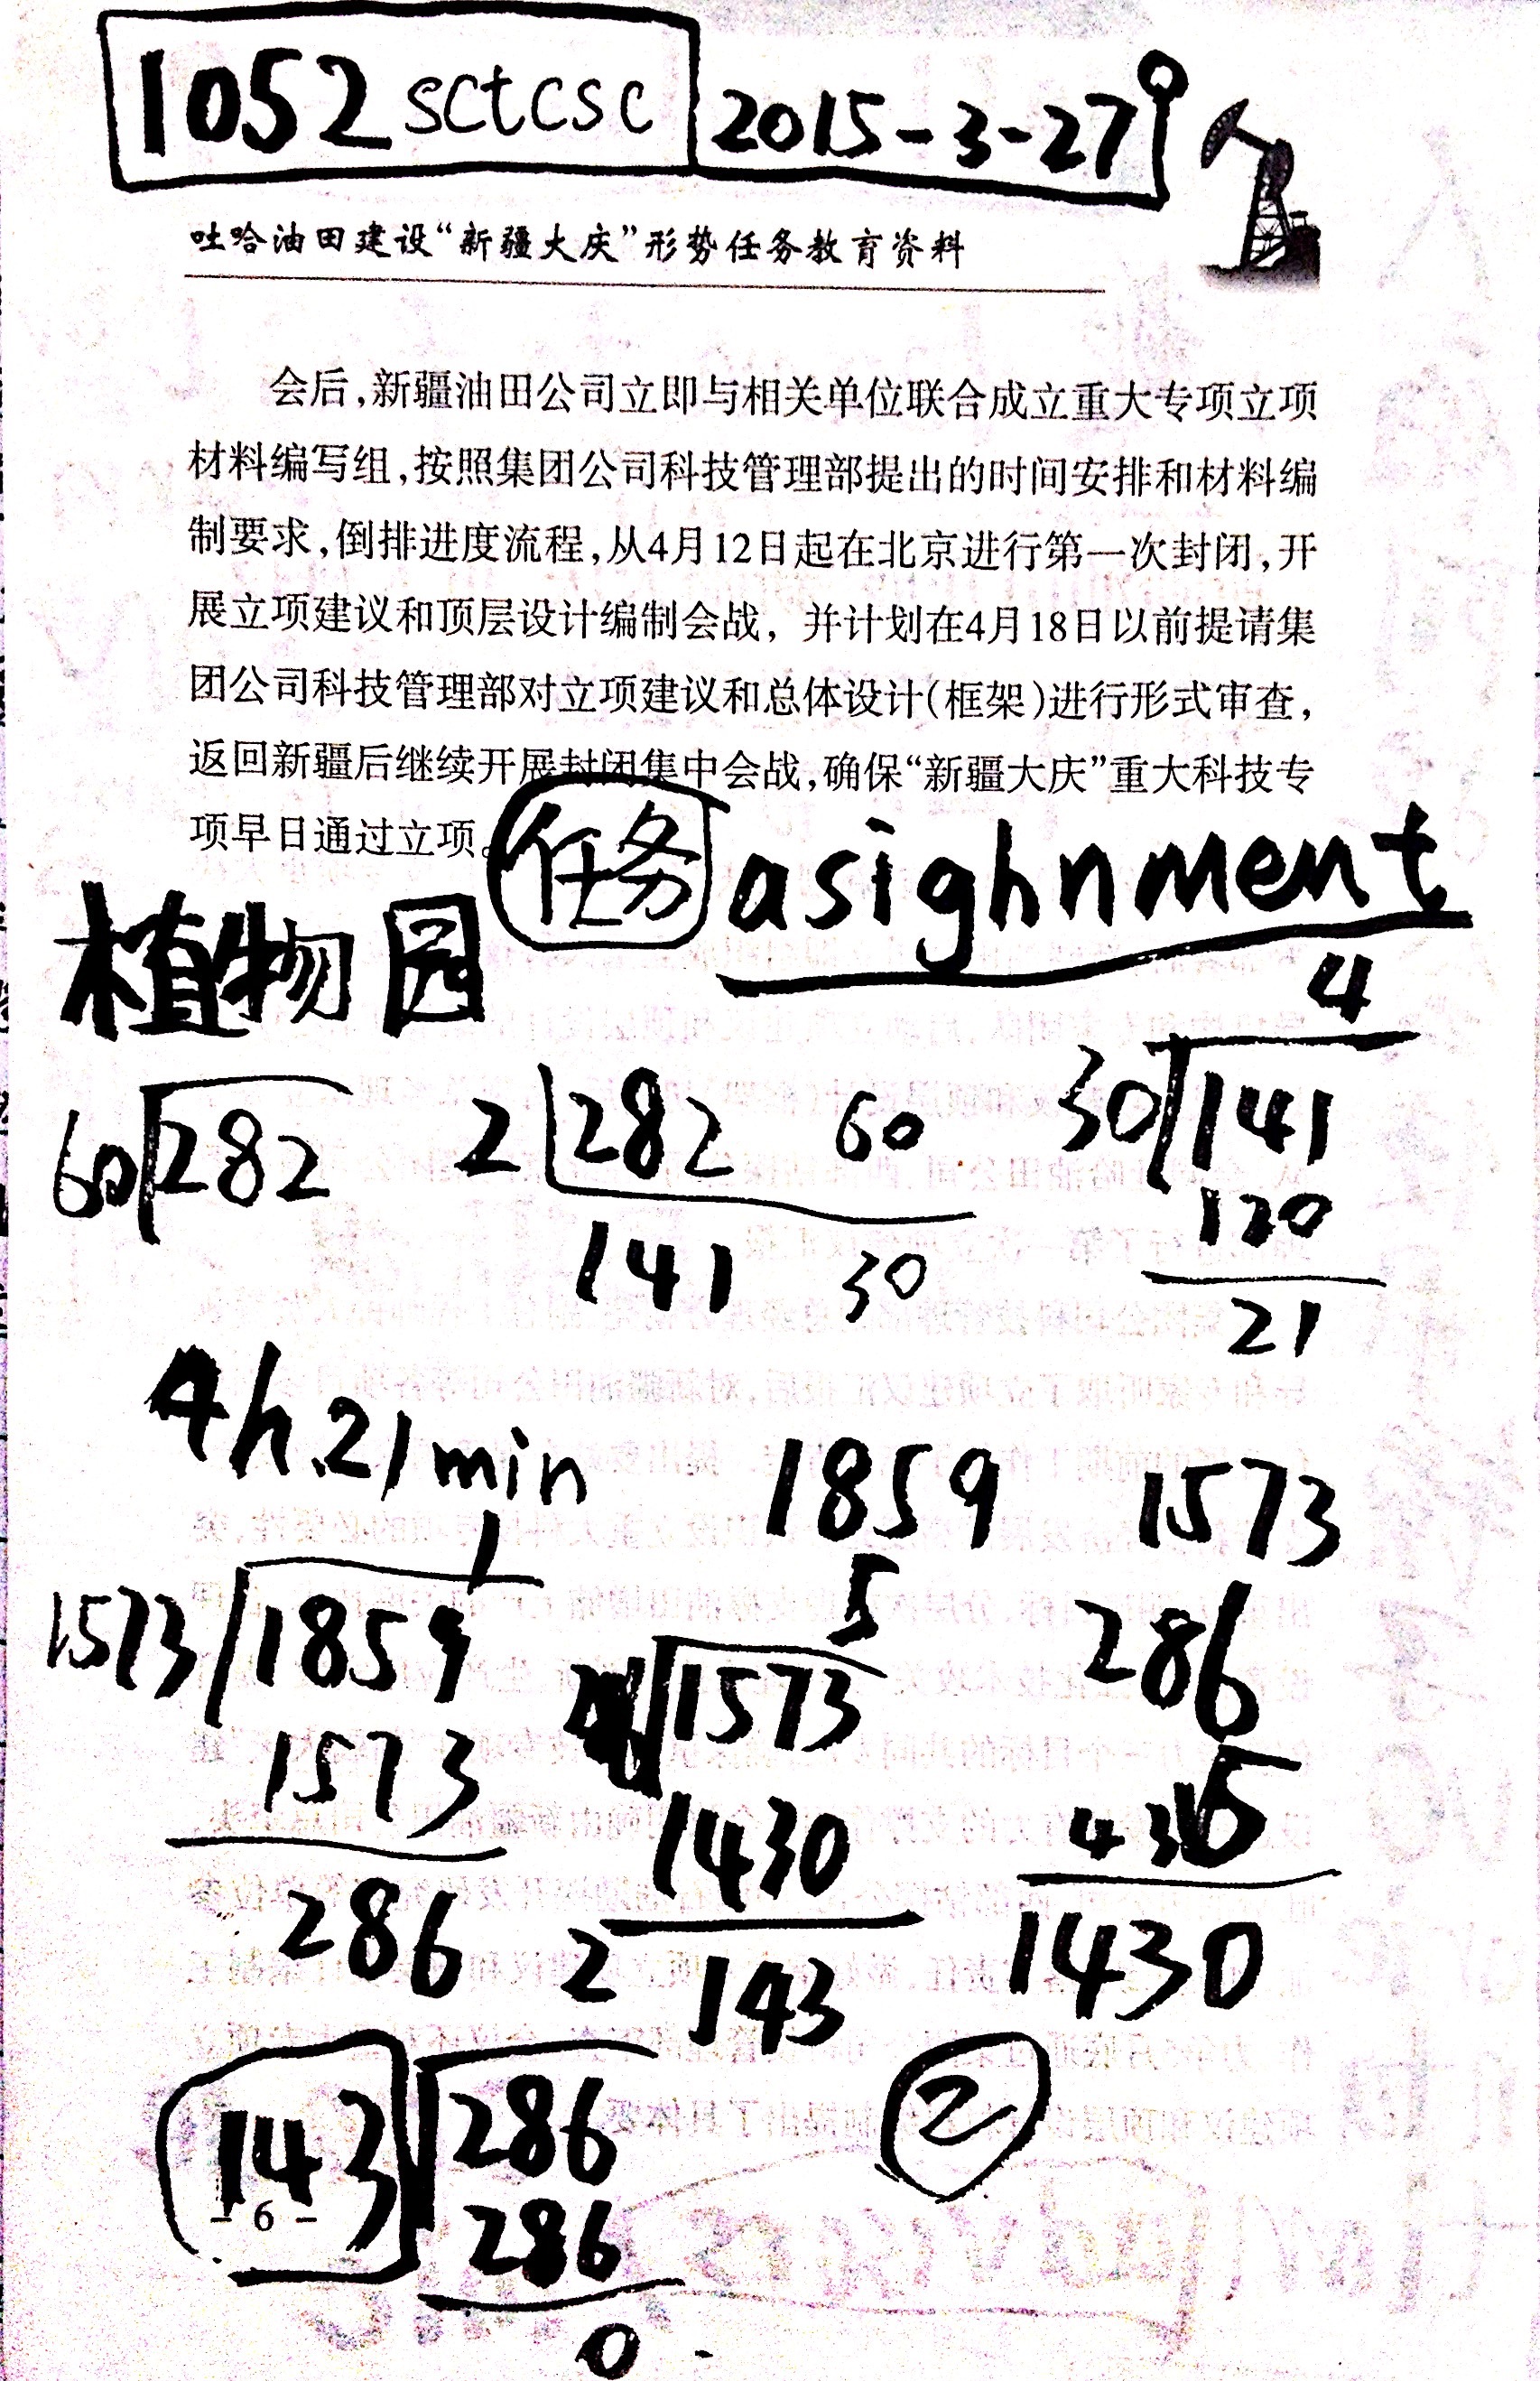 1052 sctcsc 2015-3-27
吐哈油田建设“新疆大庆”形势任务教育资料
会后,新疆油田公司立即与相关单位联合成立重大专项立项
材料编写组,按照集团公司科技管理部提出的时间安排和材料编
制要求,倒排进度流程,从4月12日起在北京进行第一次封闭,开
展立项建议和顶层设计编制会战,并计划在4月18日以前提请集
团公司科技管理部对立项建议和总体设计(框架)进行形式审查,
返回新疆后继续开展封闭集中会战,确保“新疆大庆”重大科技专
项早日通过立项。
任务 asighnment
植物园
4
60 282 2 282 60 30 141
120
141 30 21
4h.21min
1859 1573
1 5
1573 1859 1573 286
1573 1430 5
286 143 1430
2
143 286 2
286
0
- 6 -